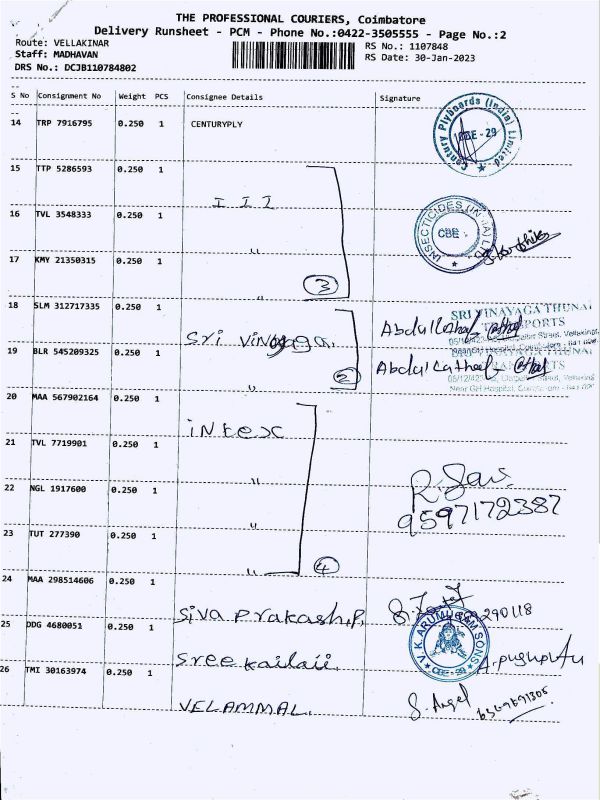 THE PROFESSIONAL COURIERS, Coimbatore
Delivery Runsheet - PCM - Phone No.:0422-3505555 - Page No.:2
Route: VELLAKINAR
RS No.: 1107848
Staff: MADHAVAN
RS Date: 30-Jan-2023
DRS No.: DCJB110784802
S No Consignment No Weight PCS Consignee Details Signature
14 TRP 7916795 0.250 1 CENTURYPLY
Century Plyboards (India) Limited
CBE - 29
15 TTP 5286593 0.250 1
III
16 TVL 3548333 0.250 1
INSECTICIDES (INDIA) LTD
CBE
"
17 KMY 21350315 0.250 1
3
"
18 SLM 312717335 0.250 1
SRI VINAYAGA THUNAI
TRANSPORTS
Sri Vinayaga.
Abdul Lathef
19 BLR 545209325 0.250 1
Abdul Latheef
2
"
20 MAA 567902164 0.250 1
intex
21 TVL 7719901 0.250 1
"
22 NGL 1917600 0.250 1
9597172387
"
23 TUT 277390 0.250 1
4
"
24 MAA 298514606 0.250 1
Siva Prakash.P.
25 DDG 4680051 0.250 1
V.K. ARUMUGAM SONS
CBE - 29
Sree Kailaii.
26 TMI 30163974 0.250 1
S. Angel
VELAMMAL.